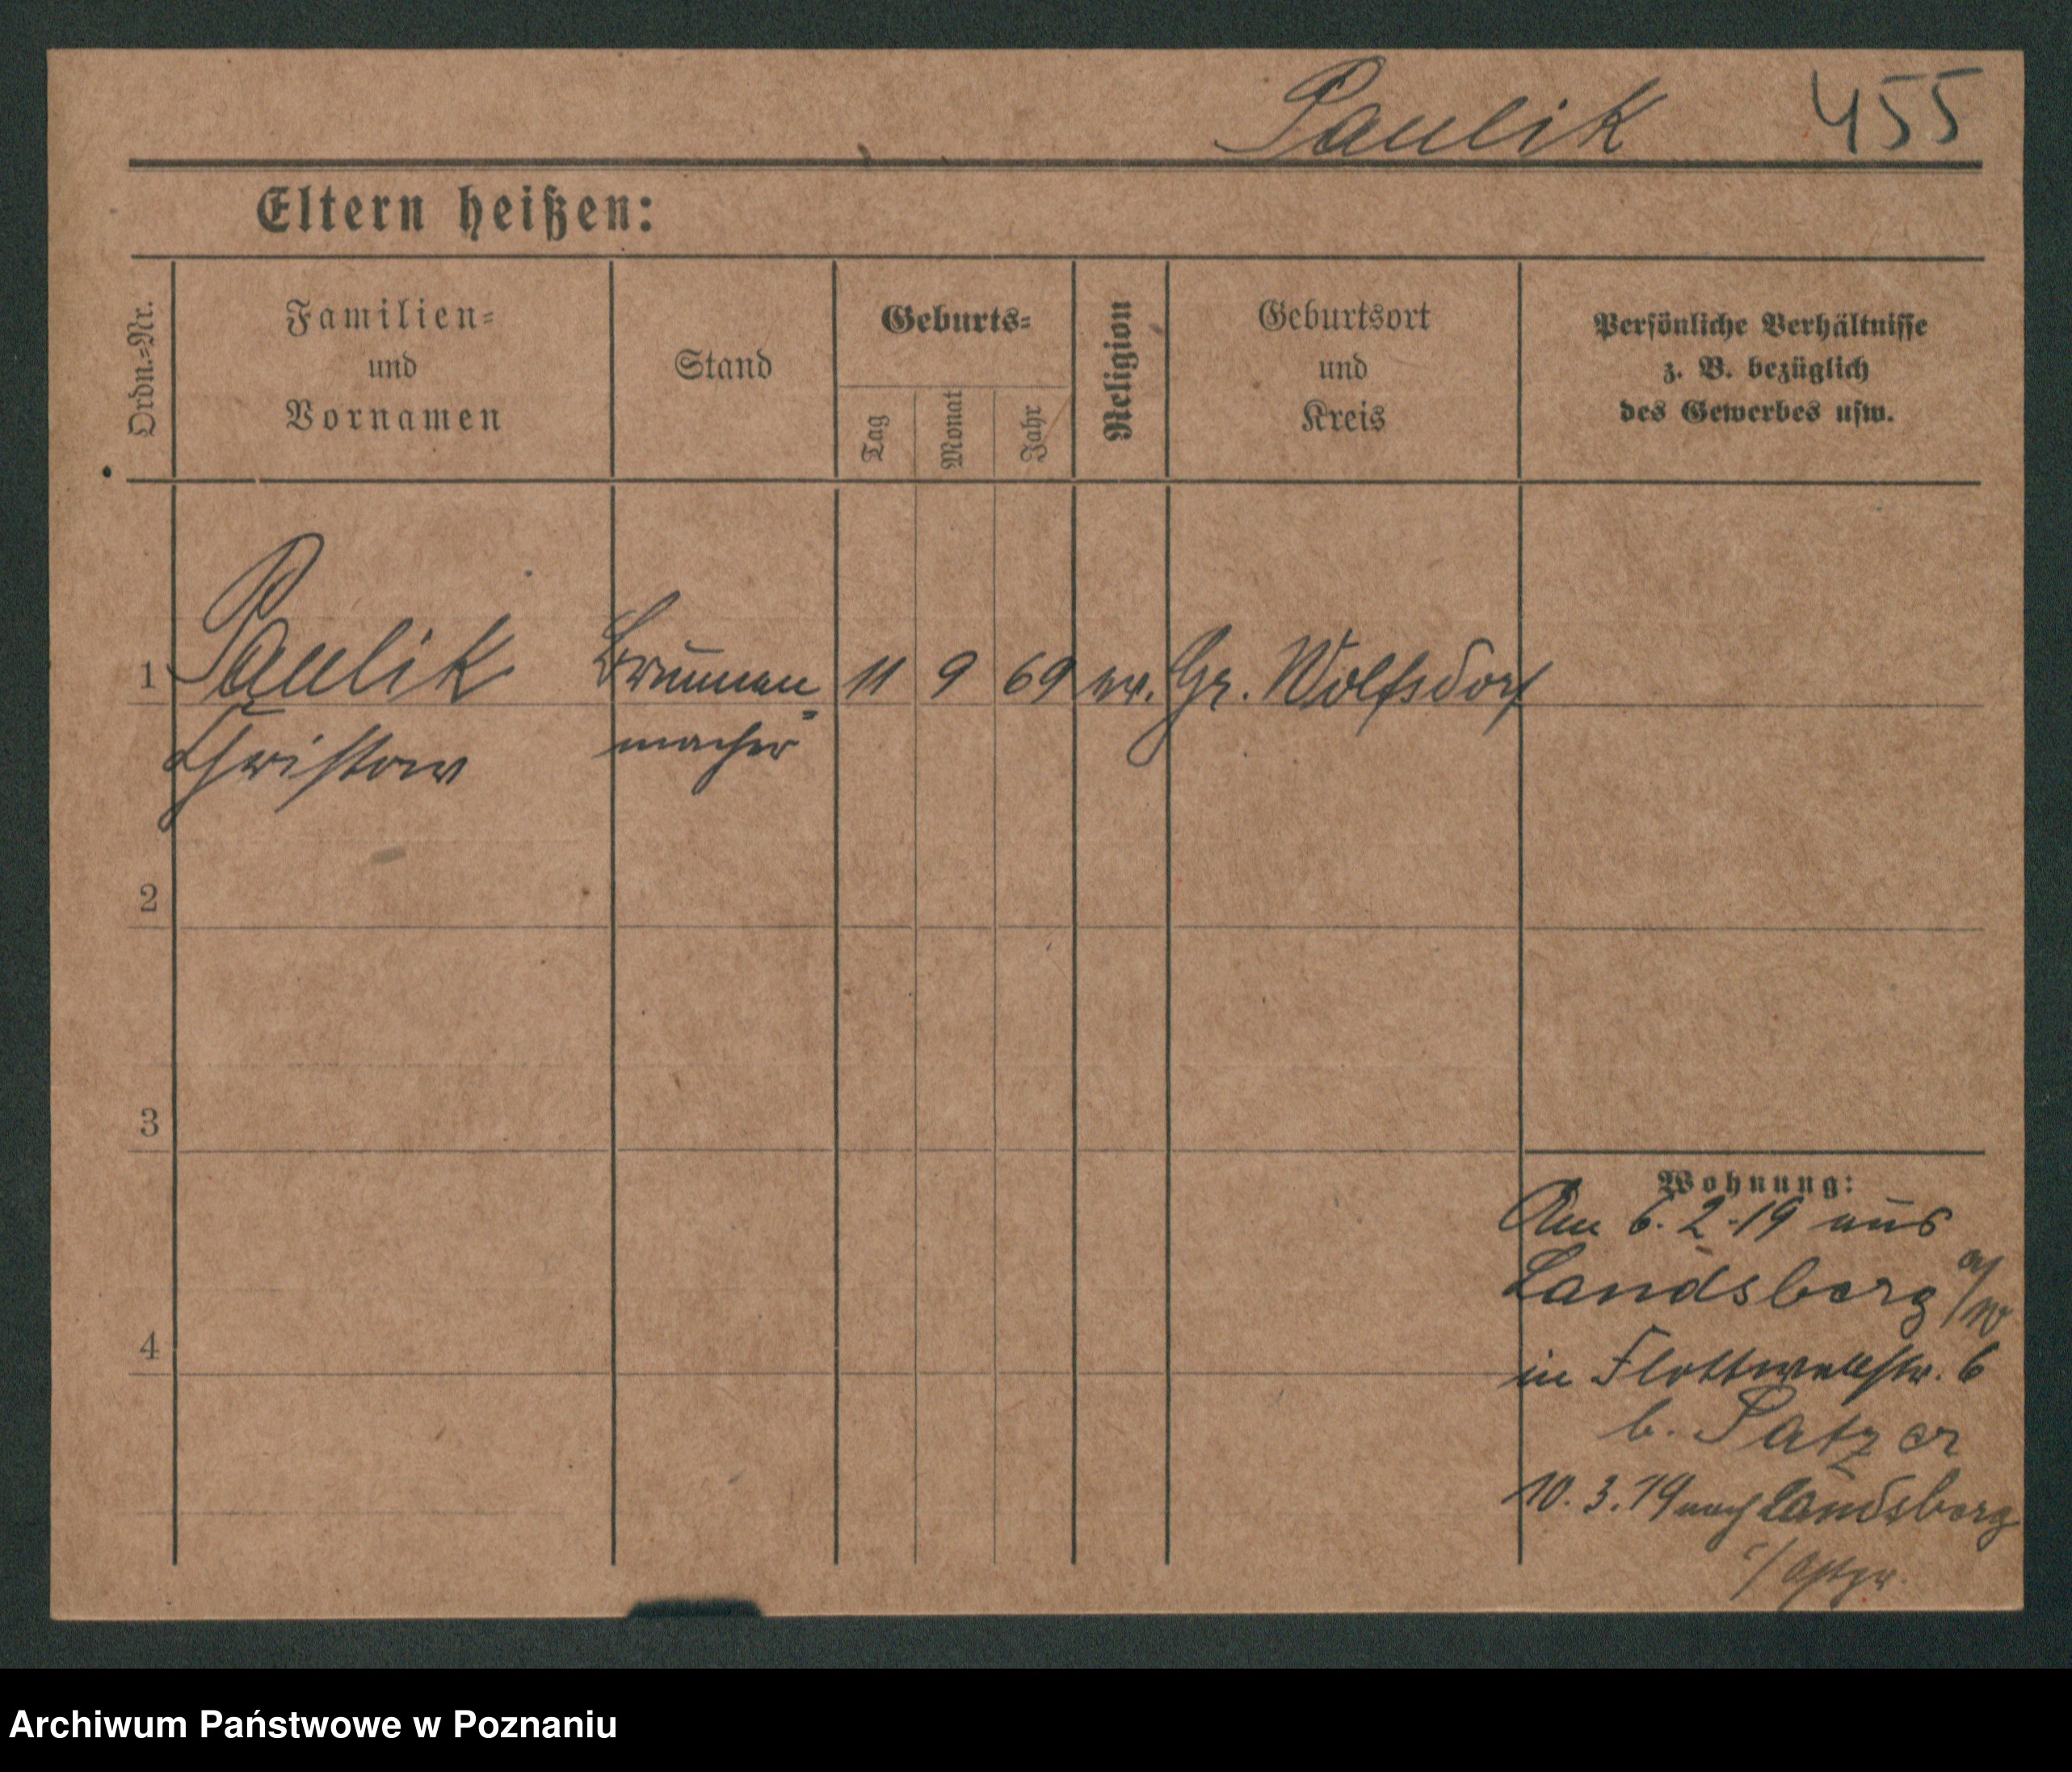 Paulik 455
Eltern heißen:
Ordn.=Nr.
Familien=
und
Vornamen
Stand
Geburts=
Tag
Monat
Jahr
Religion
Geburtsort
und
Kreis
Persönliche Verhältnisse
z. B. bezüglich
des Gewerbes usw.
1 Paulik Brunnen= 11 9 69 ev. Gr. Wolfsdorf
macher
2
3
4
Wohnung:
Am 6.2.19 aus
Landsberg a/W
in Flottwellstr. 6
b. Patzer
10.3.19 nach Landsberg
Archiwum Państwowe w Poznaniu